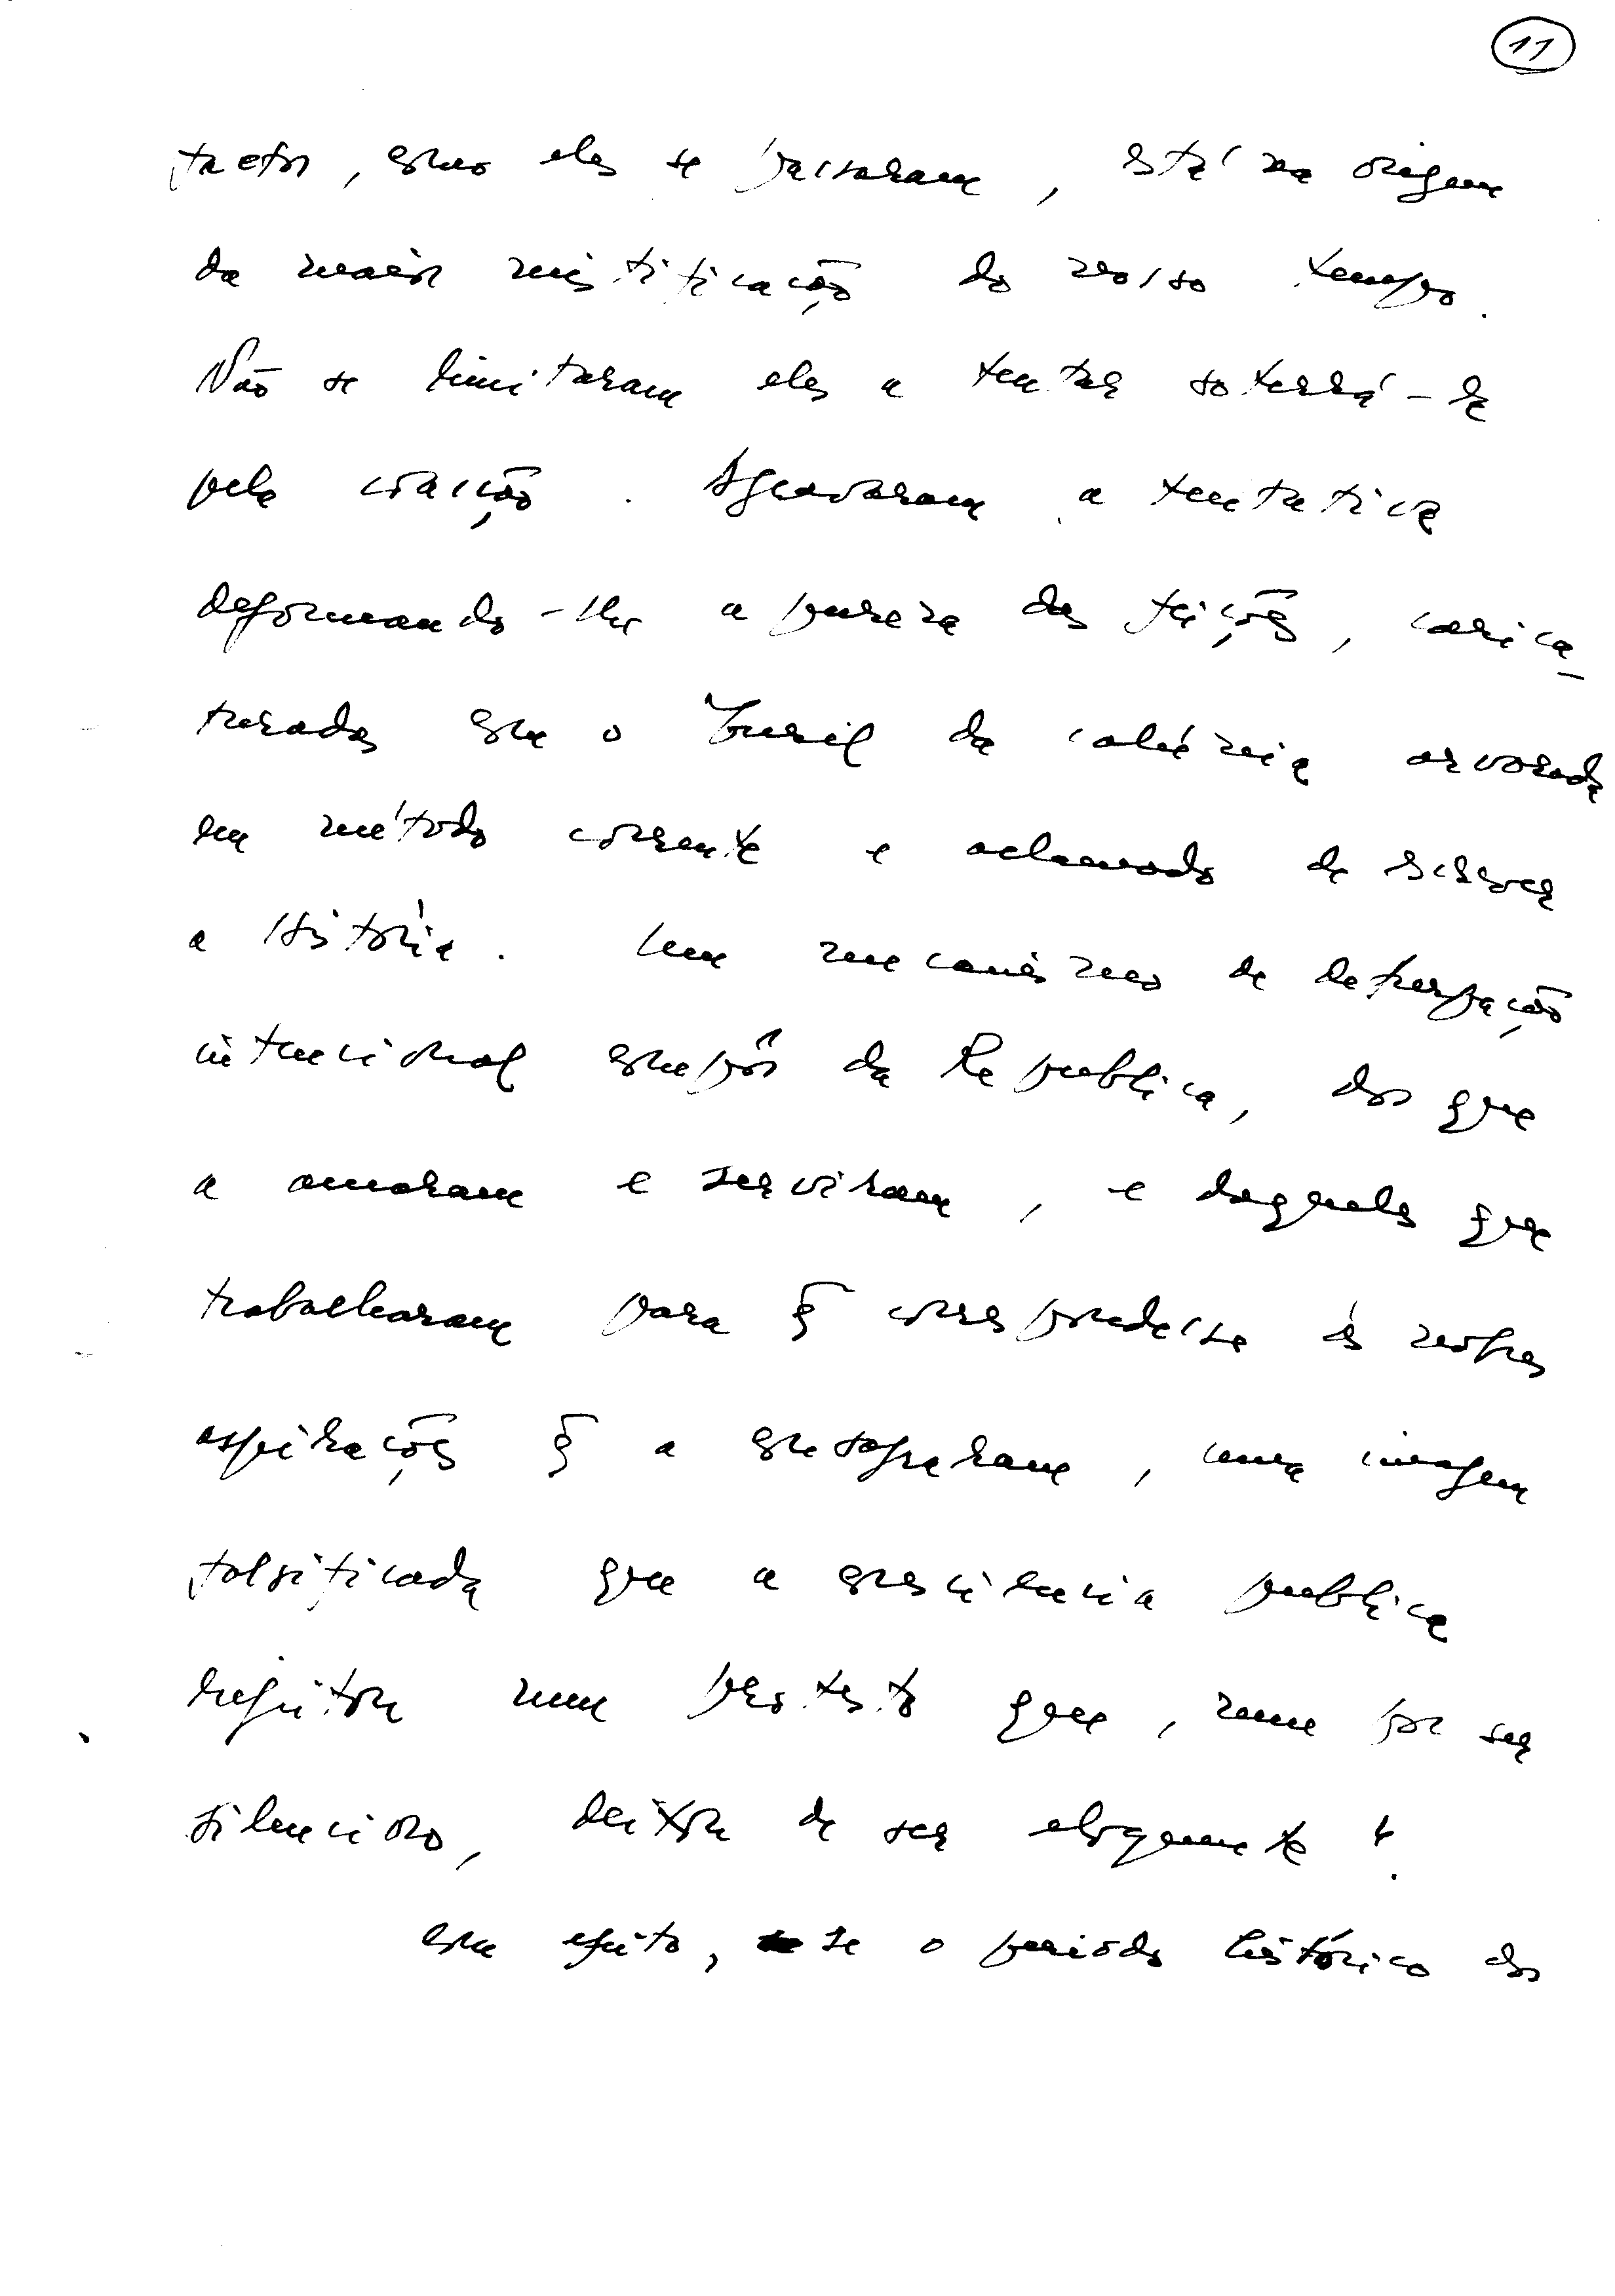 11
factos, como eles se passaram, está na origem
da maior mistificação do nosso tempo.
Não se limitaram eles a tentar soterrá-la
pela coacção. Agravaram a tentativa
deformando-lhe a pureza das feições, carica-
turadas com o buril da calúnia arvorada
em método corrente e aclamado de escrever
a História. Um mecanismo de deturpação
intencional compôs da Republica, dos que
a amaram e serviram, e daqueles que
trabalharam para q̃ correspondesse às nobres
aspirações q̃ a conceberam, uma imagem
falsificada que a consciencia publica
rejeitou num protesto que, nem por ser
silencioso, deixou de ser eloquente.
Com efeito, se o período histórico dos